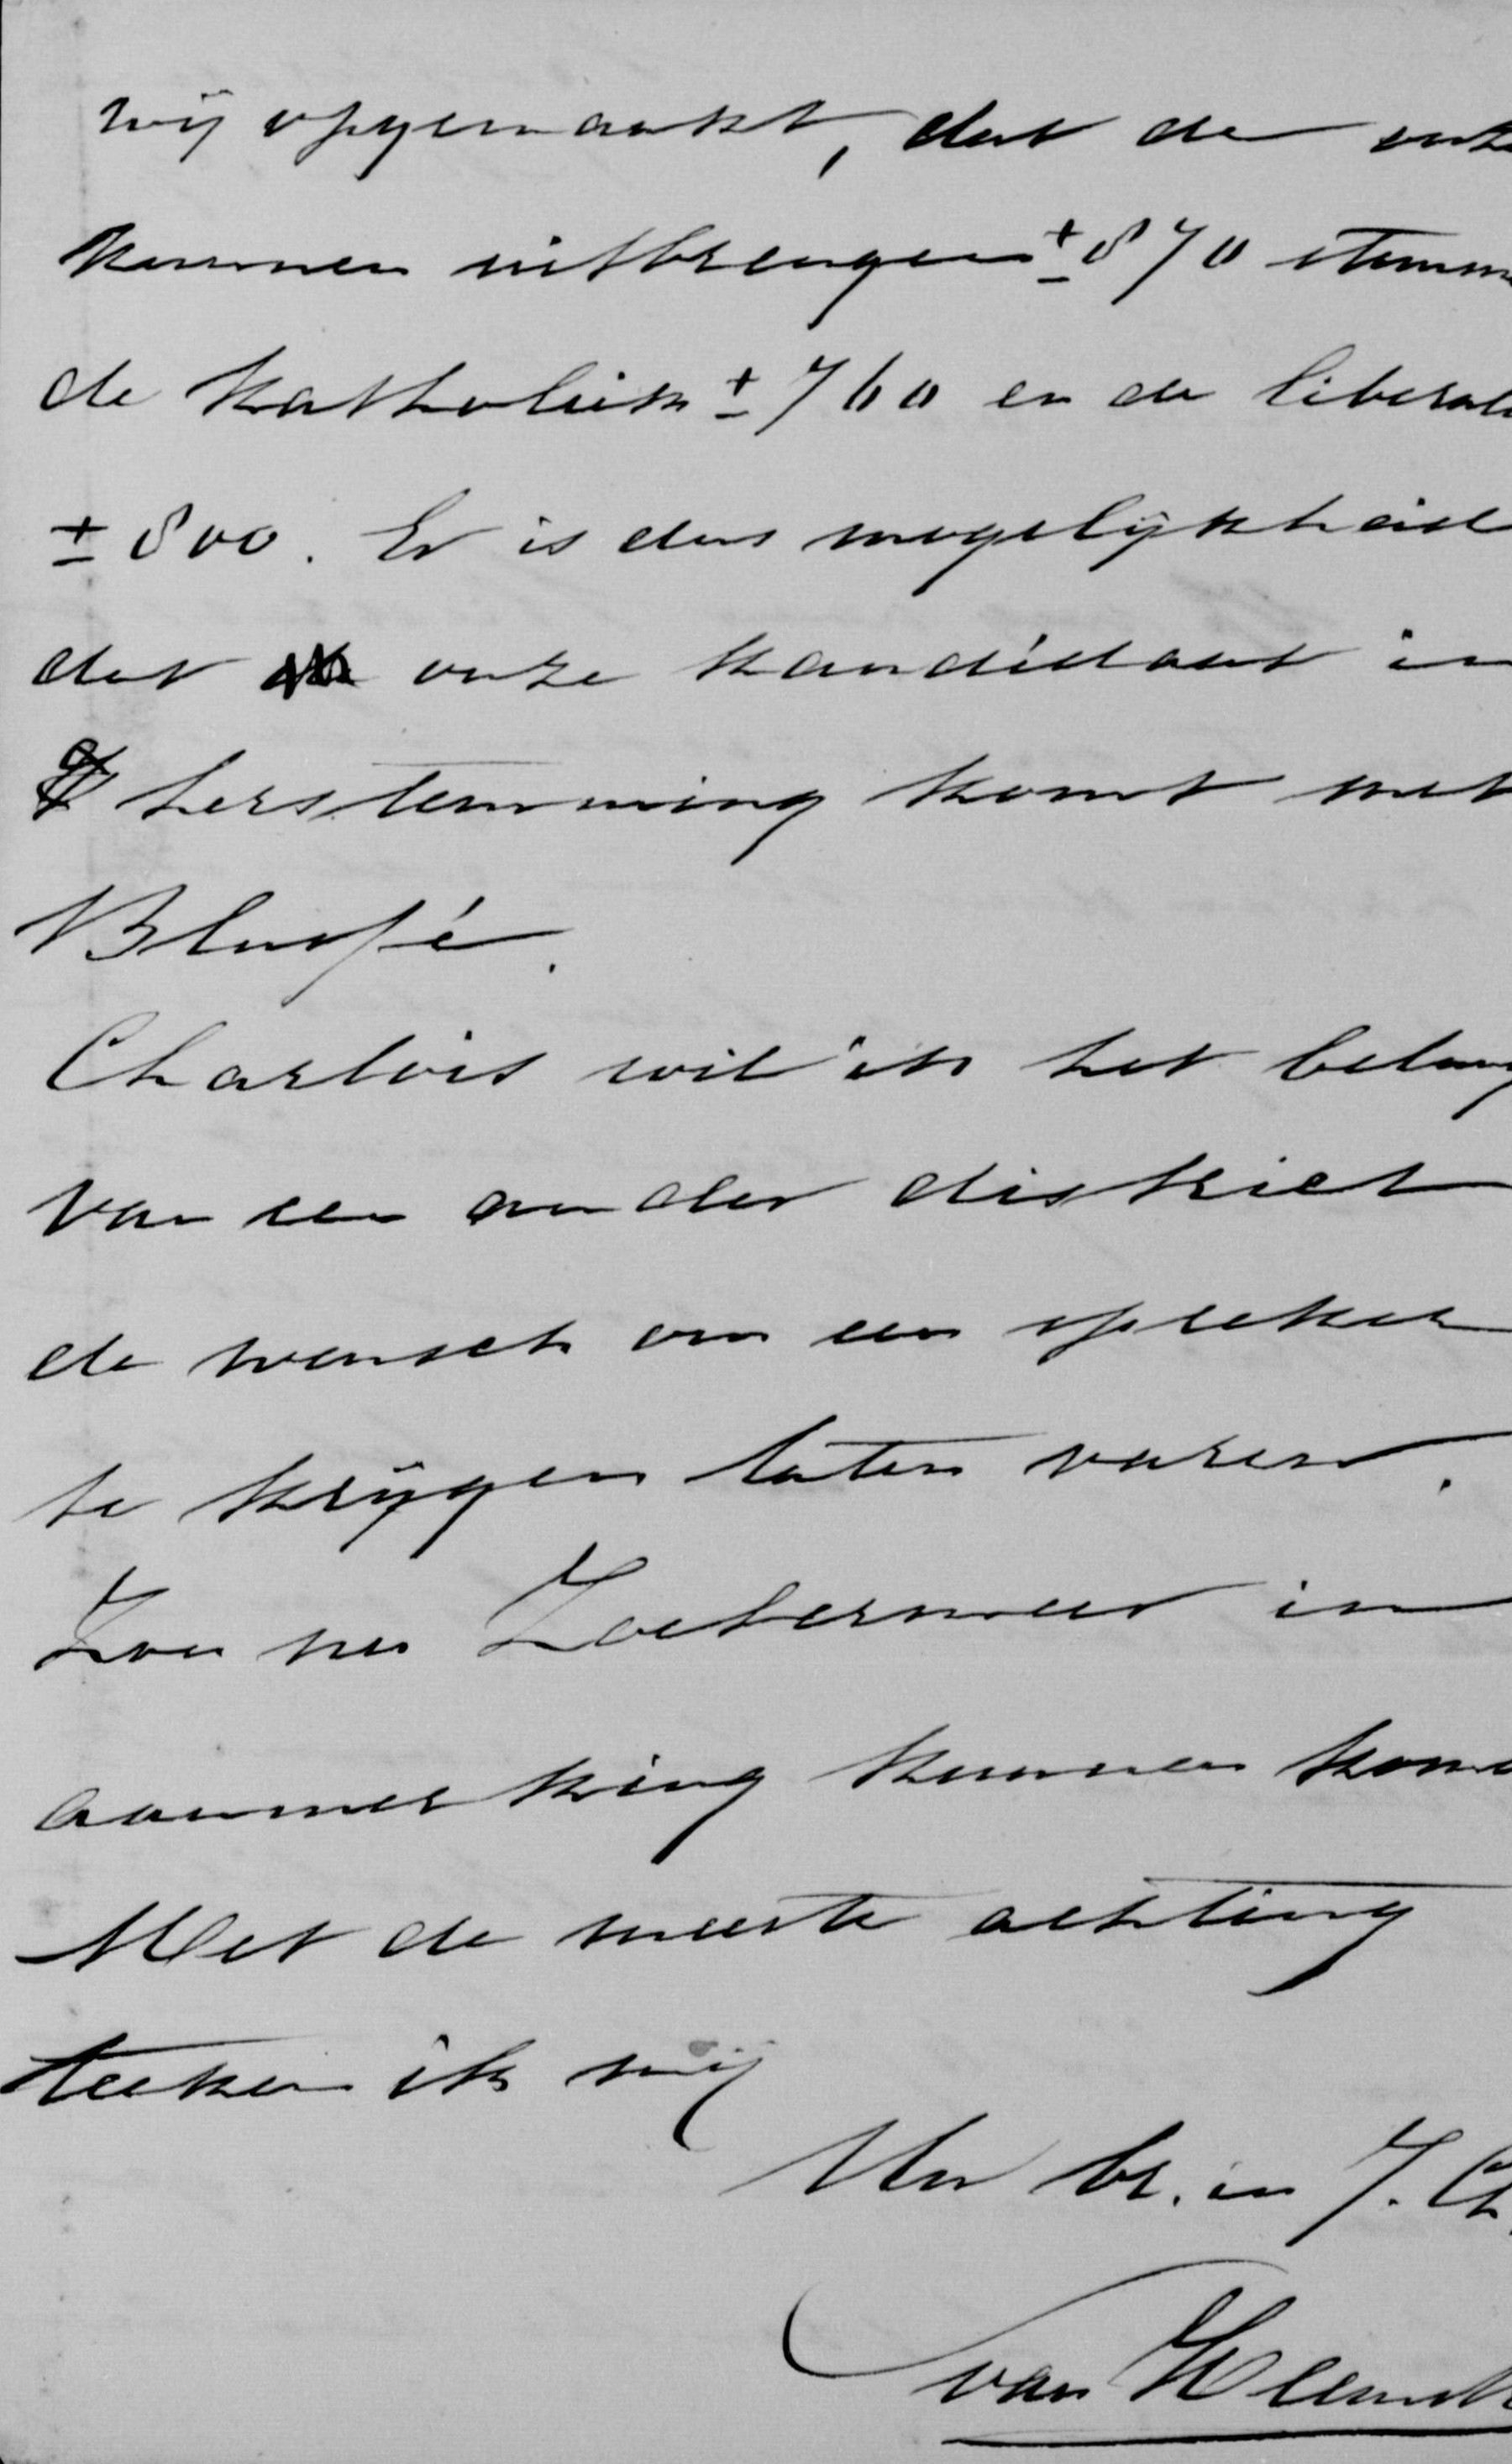 wij opgemaakt, dat de onze
kunnen uitbrengen ± 870 stemm
de katholiek ± 760 en de liberale
± 800. Er is dus mogelijkheid
dat onze kandidaat in
herstemming komt met
Blussé.
Charlois wil in het belang
van een ander district
de wensch om een spreker
te krijgen laten varen.
Zou nu Zoetermeer in
aanmerking kunnen kome
Met de meeste achting
teeken ik mij
Uw br. in J. Ch.
van